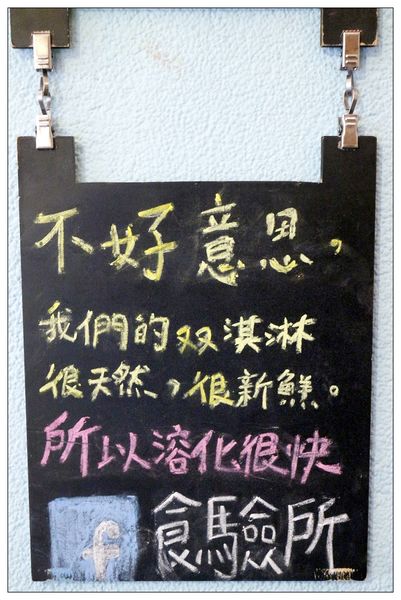 不好意思，
我們的双淇淋
很天然，很新鮮。
所以溶化很快
f 食驗所